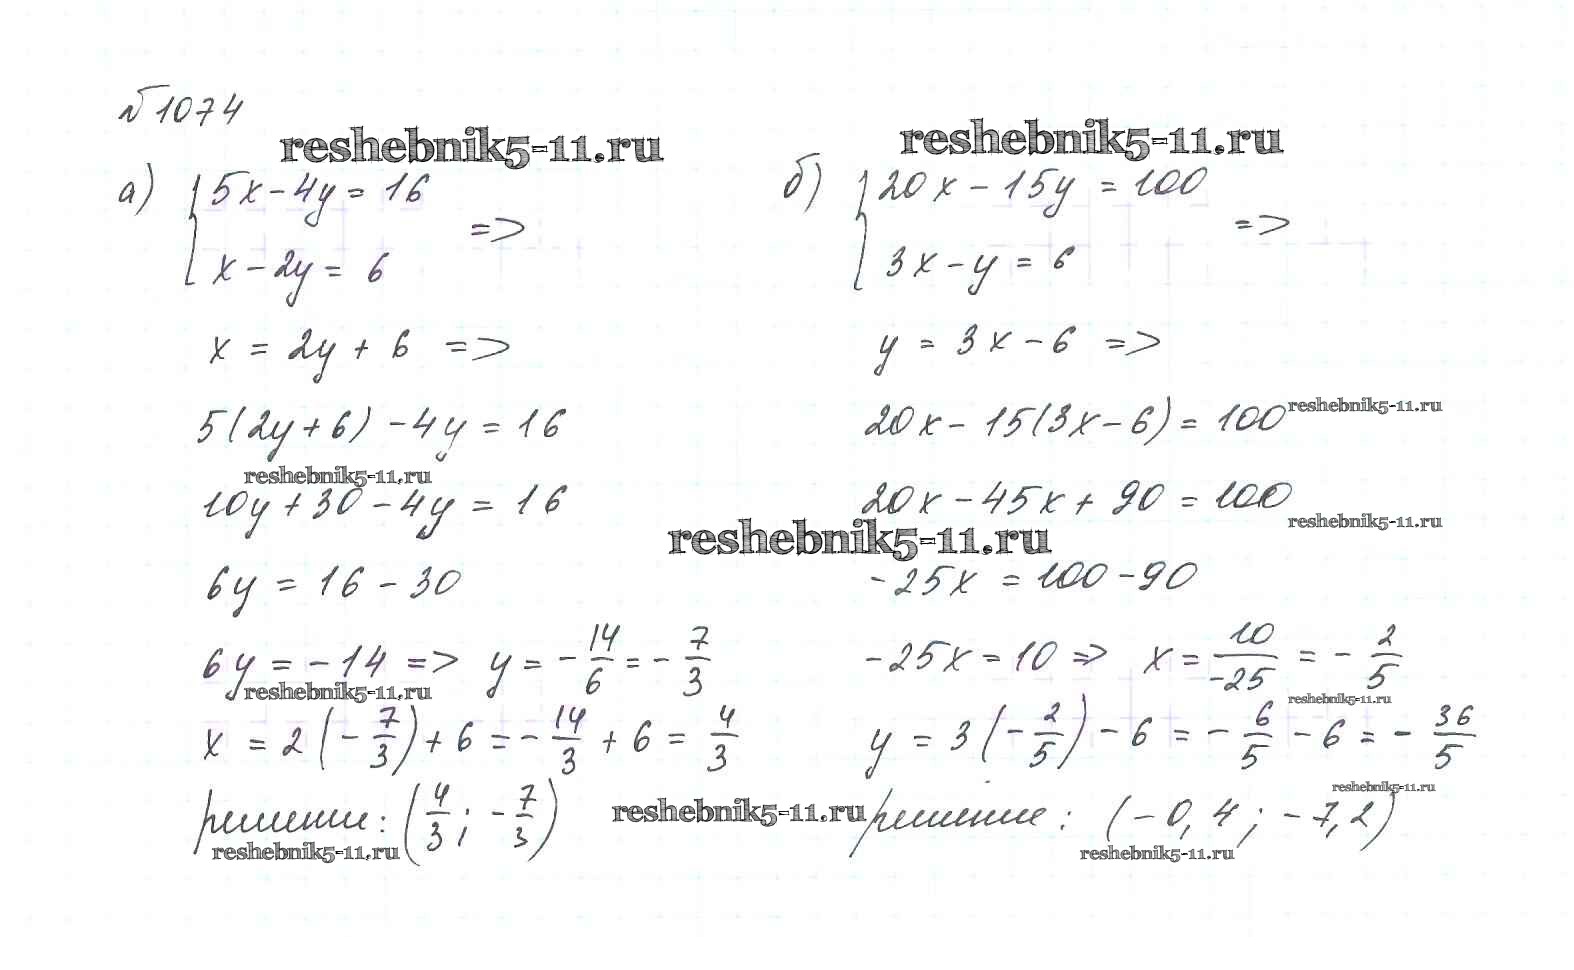 №1074
reshebnik5-11.ru
а) { 5x - 4y = 16
x - 2y = 6 =>
x = 2y + 6 =>
5(2y + 6) - 4y = 16
reshebnik5-11.ru
10y + 30 - 4y = 16
6y = 16 - 30
6y = -14 => y = -14/6 = -7/3
reshebnik5-11.ru
x = 2(-7/3) + 6 = -14/3 + 6 = 4/3
решение: (4/3; -7/3)
reshebnik5-11.ru
reshebnik5-11.ru
reshebnik5-11.ru
reshebnik5-11.ru
б) { 20x - 15y = 100
3x - y = 6 =>
y = 3x - 6 =>
20x - 15(3x - 6) = 100
reshebnik5-11.ru
20x - 45x + 90 = 100
reshebnik5-11.ru
-25x = 100 - 90
-25x = 10 => x = 10/-25 = -2/5
reshebnik5-11.ru
y = 3(-2/5) - 6 = -6/5 - 6 = -36/5
reshebnik5-11.ru
решение: (-0,4; -7,2)
reshebnik5-11.ru